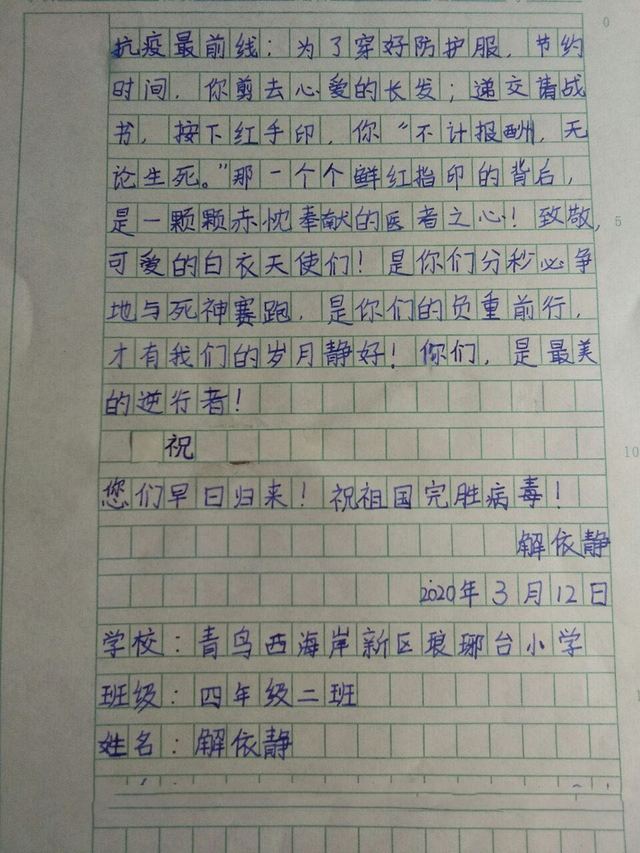 抗疫最前线；为了穿好防护服，节约
时间，你剪去心爱的长发；递交请战
书，按下红手印，你“不计报酬，无
论生死。”那一个个鲜红指印的背后，
是一颗颗赤忱奉献的医者之心！致敬，
可爱的白衣天使们！是你们分秒必争
地与死神赛跑，是你们的负重前行，
才有我们的岁月静好！你们，是最美
的逆行者！
祝
您们早日归来！祝祖国完胜病毒！
解依静
2020年3月12日
学校：青鸟西海岸新区琅琊台小学
班级：四年级二班
姓名：解依静
0
5
10